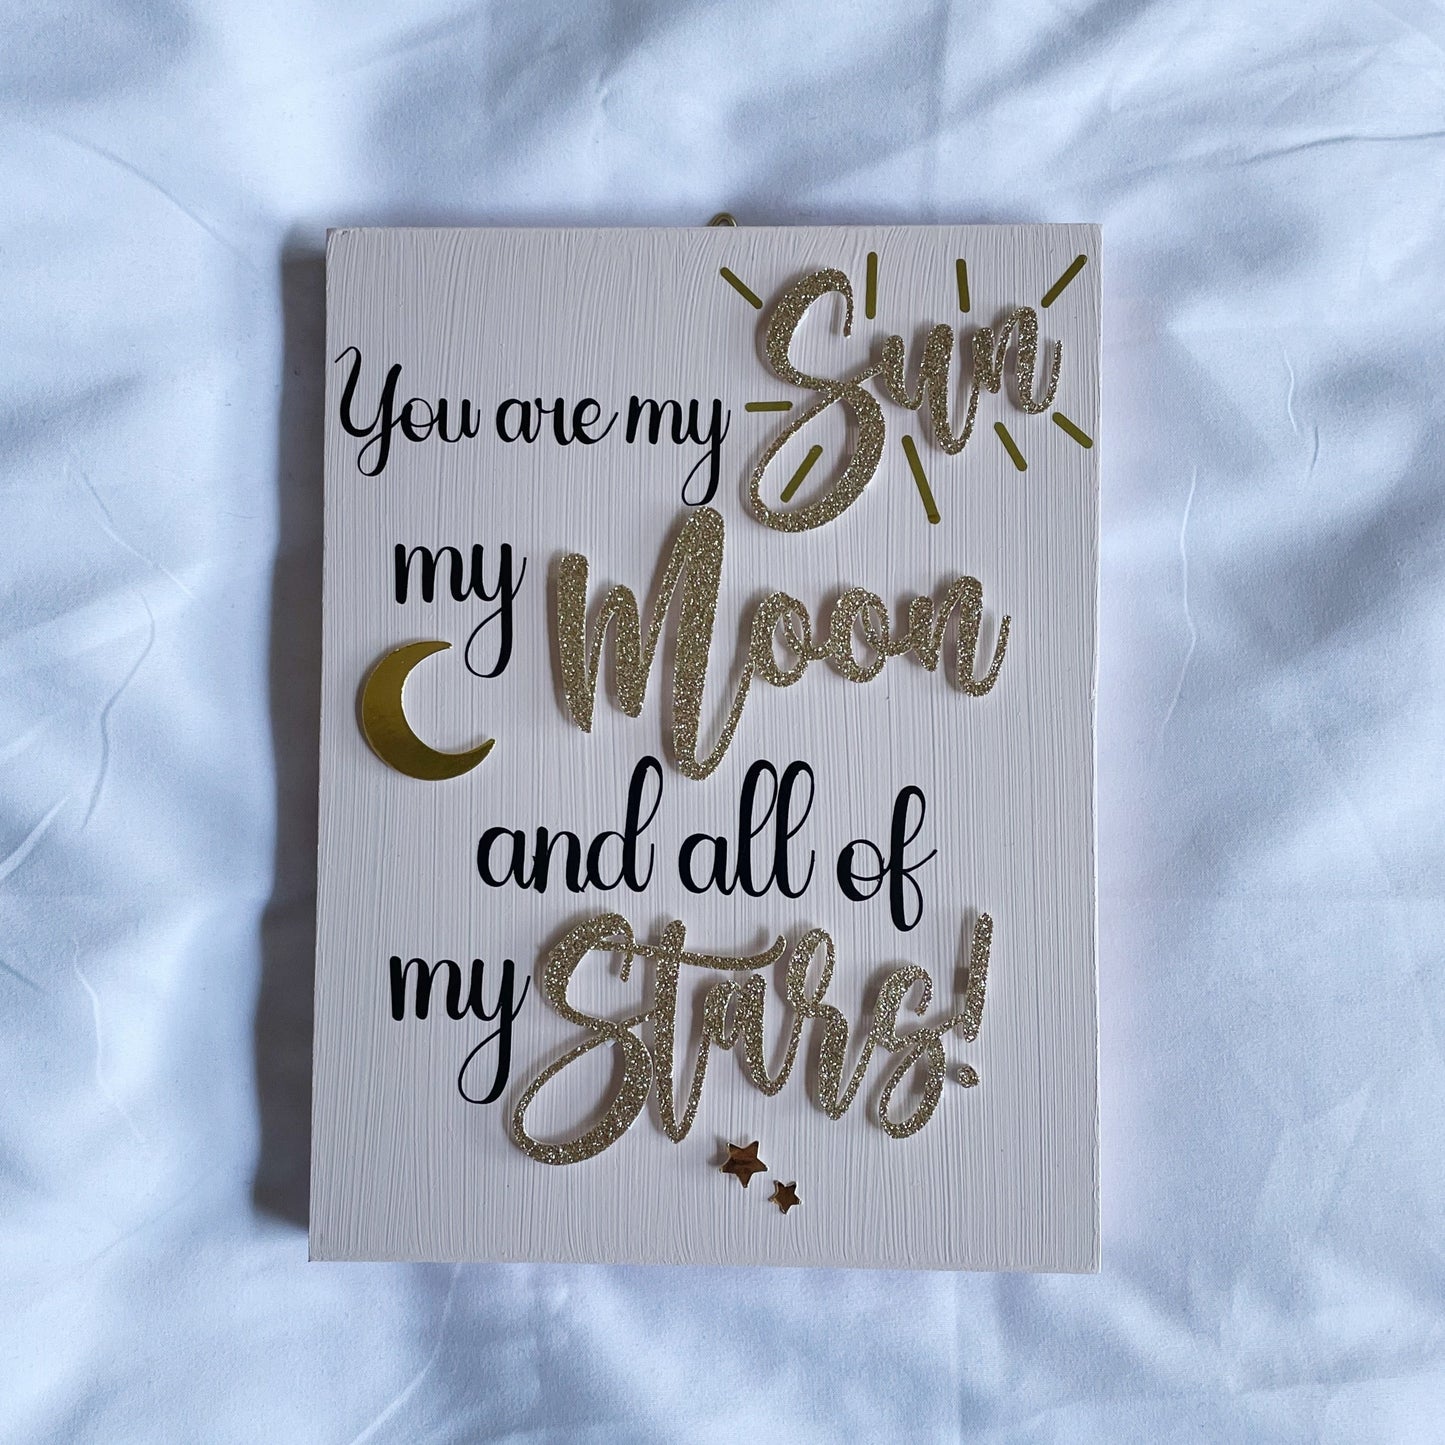 You are my Sun
my Moon
and all of
my Stars!